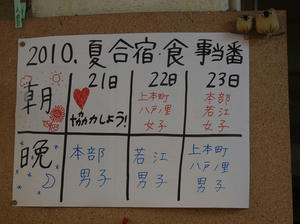 2010.夏合宿・食事当番
21日 22日 23日
朝
協力しよう!
上本町
八戸ノ里
女子
本部
若江
女子
晩
本部
男子
若江
男子
上本町
八戸ノ里
男子